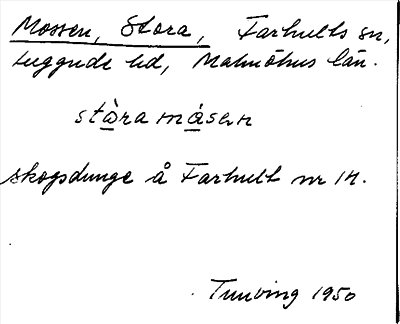 Mossen, Stora, Farhults sn,
Luggude hd, Malmöhus län.
stàra måsen
skogsdunge å Farhult nr 14.
Tunving 1950